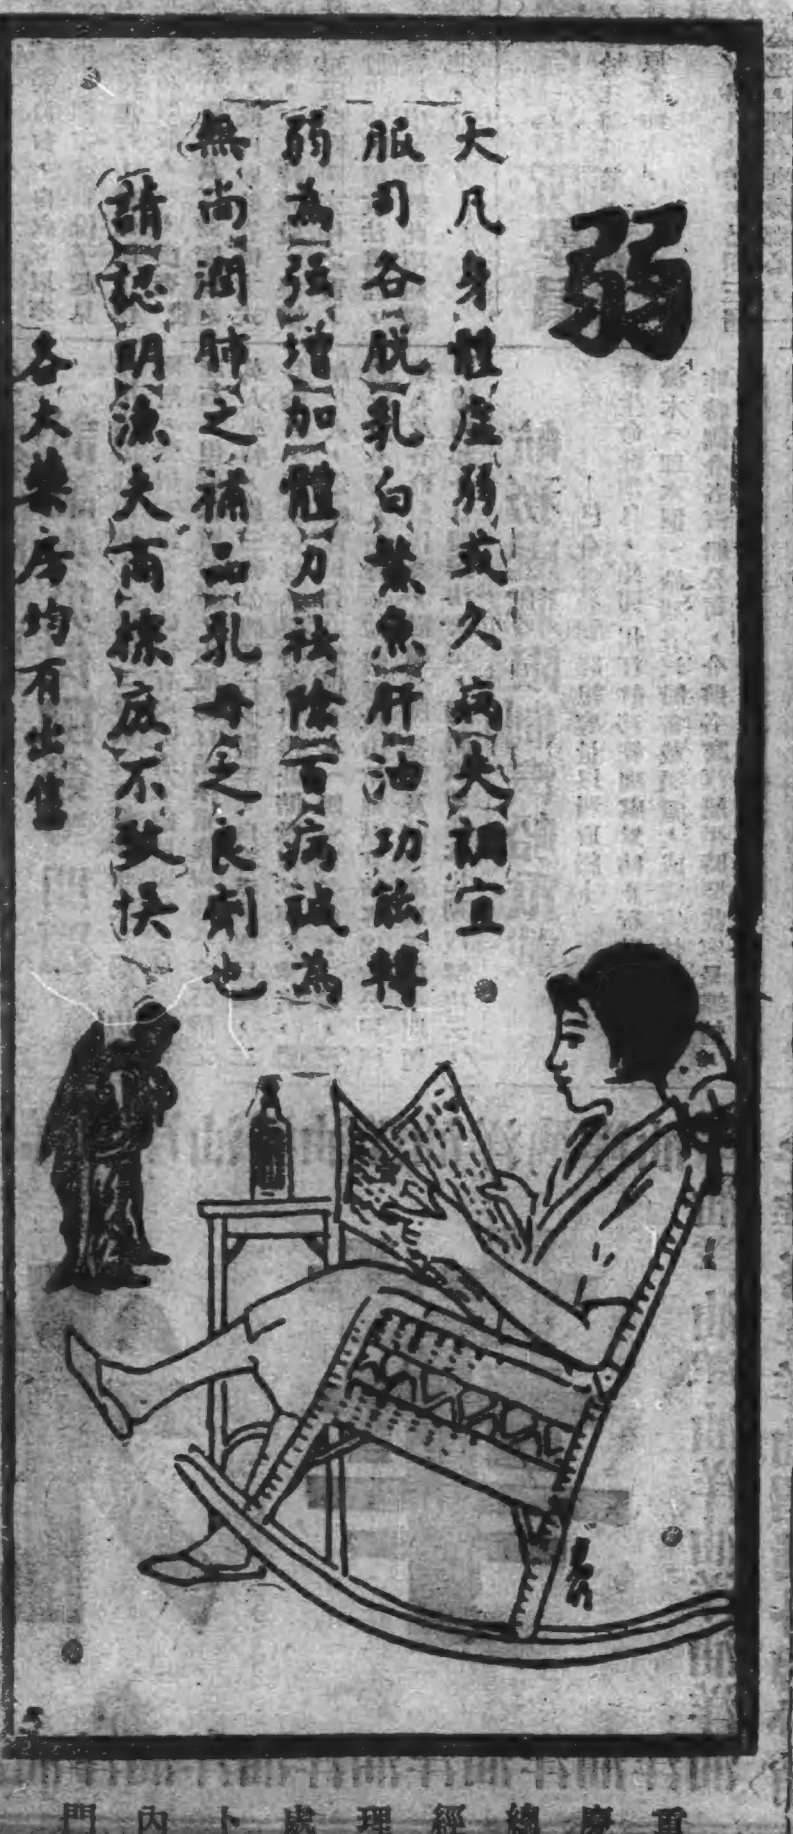 弱
大凡身體虛弱或久病失調宜
服司各脱乳白鰵魚肝油功能轉
弱為强增加體力祛除百病誠為
無尚潤肺之補品乳母之良劑也
請認明漁夫商標庶不致悮
各大藥房均有出售
重慶總經理處卜內門